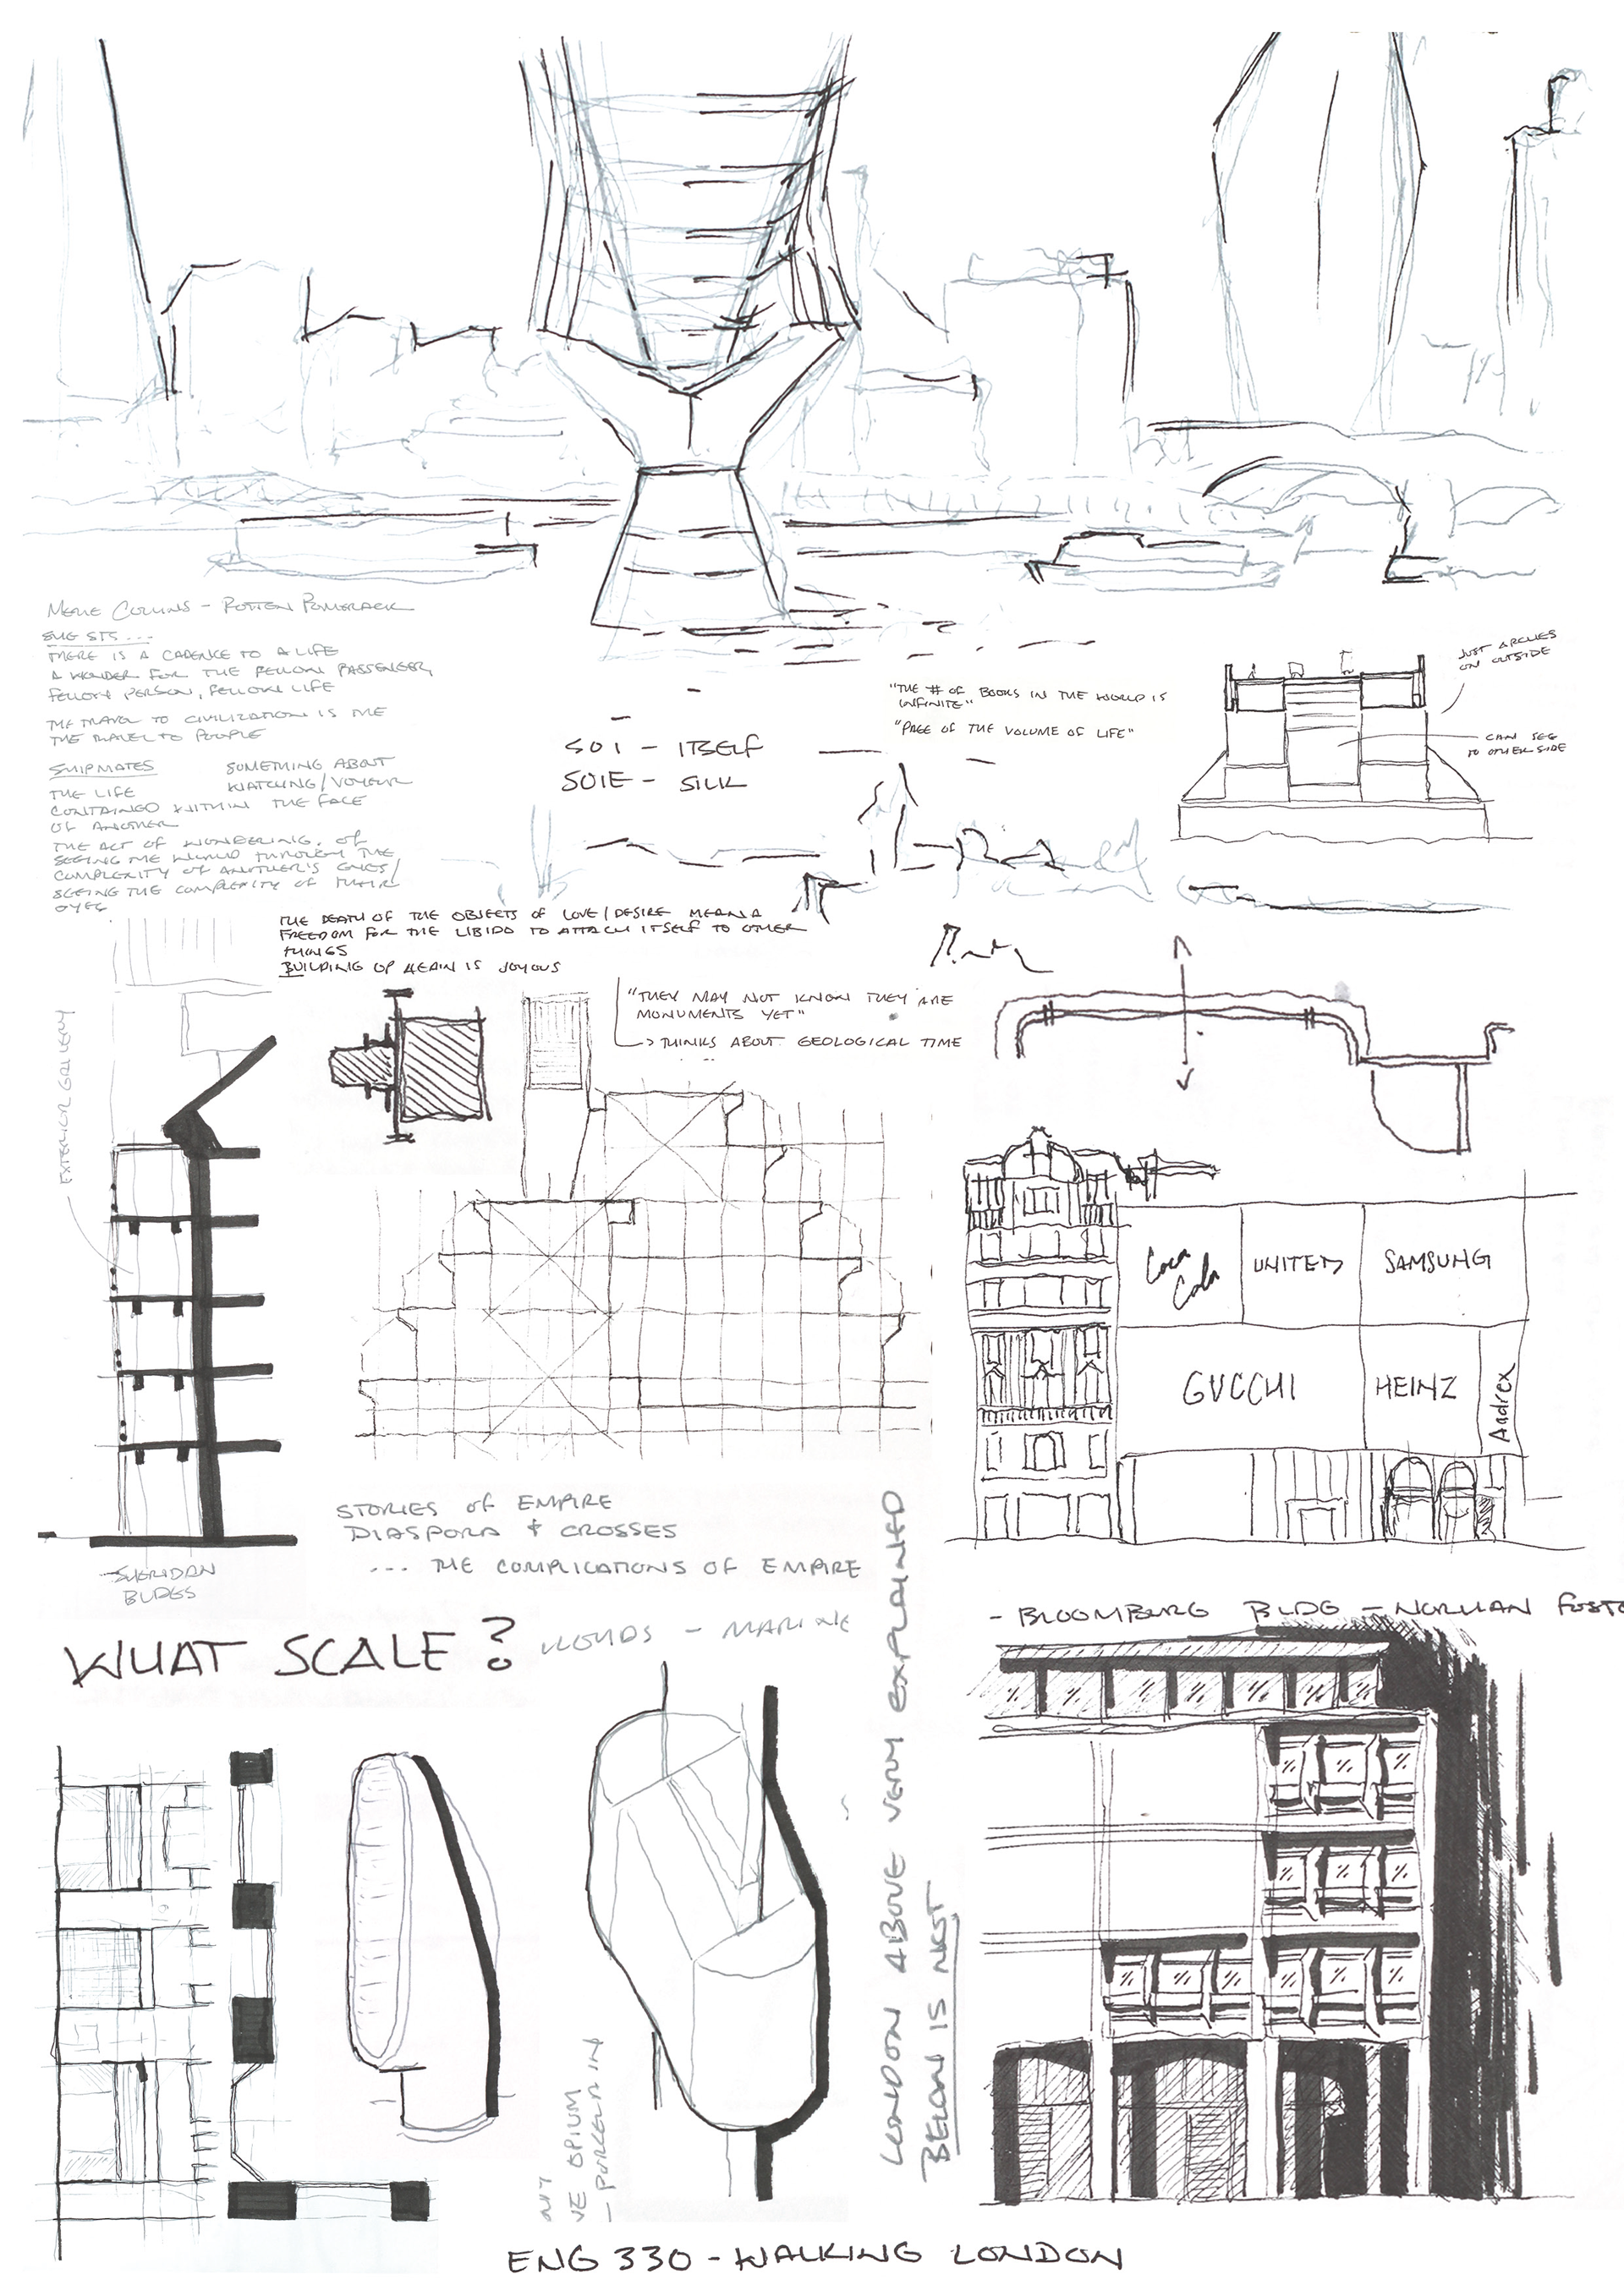 MERLE COLLINS - ROTTEN POMERACK
SUGGESTS...
THERE IS A CADENCE TO A LIFE
A WONDER FOR THE FELLOW PASSENGER,
FELLOW PERSON, FELLOW LIFE
THE TRAVEL TO CIVILIZATION IS THE
THE TRAVEL TO PEOPLE
SHIPMATES
THE LIFE
CONTAINED WITHIN THE FACE
OF ANOTHER
SOMETHING ABOUT
WATCHING/VOYEUR
THE ACT OF WONDERING, OF
SEEING THE WORLD THROUGH THE
COMPLEXITY OF ANOTHER'S EYES/
SEEING THE COMPLEXITY OF THEIR
EYES
SOI - ITSELF
SOIE - SILK
"THE # OF BOOKS IN THE WORLD IS
INFINITE"
"PAGE OF THE VOLUME OF LIFE"
JUST ARCHES
ON OUTSIDE
CAN SEE
TO OTHER SIDE
THE DEATH OF THE OBJECTS OF LOVE/DESIRE MEAN A
FREEDOM FOR THE LIBIDO TO ATTACH ITSELF TO OTHER
THINGS
BUILDING UP AGAIN IS JOYOUS
"THEY MAY NOT KNOW THEY ARE
MONUMENTS YET"
-> THINKS ABOUT GEOLOGICAL TIME
EXTERIOR GALLERY
SHERIDAN
BLDGS
Coca
Cola
UNITED
SAMSUNG
GUCCHI
HEINZ
Andrex
STORIES OF EMPIRE
DIASPORA + CROSSES
... THE COMPLICATIONS OF EMPIRE
WHAT SCALE?
- MARINE
LONDON ABOVE VERY EXPLAINED
BELOW IS NOT
- BLOOMBURG BLDG - NORMAN FOSTE
OPIUM
ENG 330 - WALKING LONDON